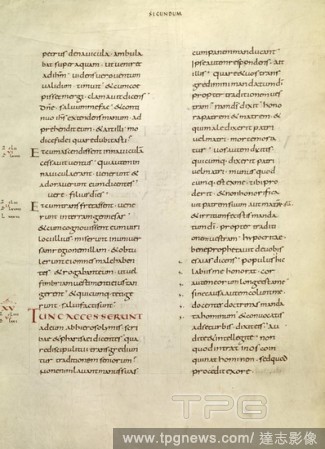 SECUNDUM
petrus denauicula ambula
bat super aquam · ut ueniret
adihm̄ · uidens uero uentum
ualidum · timuit · & cumcoe
pisset mergi · clamauit dicens
dn̄e · saluummefac · & conti
nuo ihs̄ extendens manum · ad
prehendit eum · & ait illi · mo
dicefidei quare dubitasti
Et cum ascendissent innauicula
cessauit uentus · qui autem in
nauicula erant · uenerunt &
adorauerunt eum dicentes
uere filius di es
Et cum transfretassent · uene
runt interram gennesar
& cum cognouissent eum uiri
loci illius · miserunt inuniuer
sam regionem illam · & obtu
lerunt ei omnes male haben
tes · & rogabant eum · ut uel
fimbriam uestimenti eius tan
gerent · & quicumque tetige
runt · salui facti sunt
XV
TUNC ACCESSERUNT
adeum abhierosolimis · scri
bae & pharisaei dicentes · qua
re discipuli tui transgrediun
tur traditionem seniorum
non enim lauant manus suas
cum panem manducant
Ipse autem respondens · ait
illis · quare & uos trans
gredimini mandatum di
propter traditionem ues
tram · nam ds dixit · hono
ra patrem & matrem · &
qui maledixerit patri
uel matri · morte moria
tur · uos autem dicitis ·
quicumque dixerit patri
uel matri · munus quod
cumque est ex me · tibi pro
derit · & non honorific a
uit patrem suum aut matrem
& irritum fecistis manda
tum di · propter traditi
onem uestram · hypocritae ·
bene prophetauit de uobis
esaias dicens · populus hic
labiis me honorat · cor
autem eorum longe est a me
sine causa autem colunt me ·
docentes doctrinas manda
ta hominum · & conuocatis
ad se turbis · dixit eis · au
dite & intellegite · non
quod intrat in os coin
quinat hominem · sed quod
procedit ex ore ·
TPG
www.tpgnews.com / 達志影像